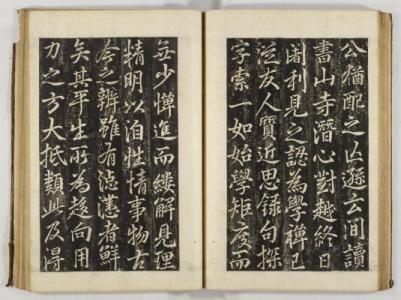 公猶配之遜云間讀
書山寺潛心對越終日
闍利見之認為學禅已
從友人質近思錄句探
字索一如始學矩度而
無少憚進而縷解見理
精明以泊性情事物古
今之辨雖有者鮮
矣其平生所為趍向用
力之方大抵類此及得